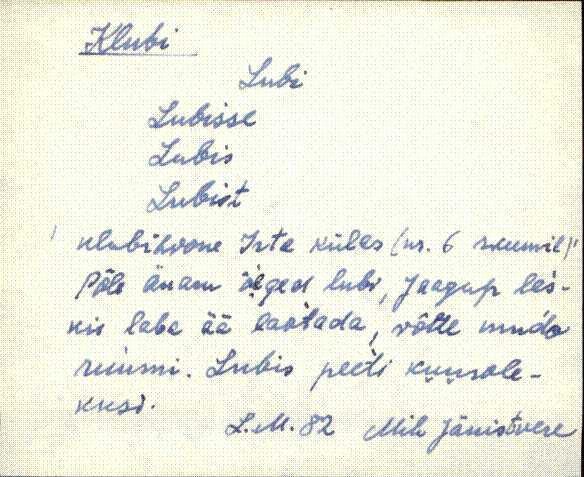 Klubi
Lubi
Lubisse
Lubis
Lubist
klubihoone Irta küläs (nr. 6 ruumil)
Põle änam õiged lubi, Jaagup les-
kis laba ää laotada, võtte muda
ruumi. Lubis peeti kuusole-
kusi.
L.M. 82 Mih Jänistvere